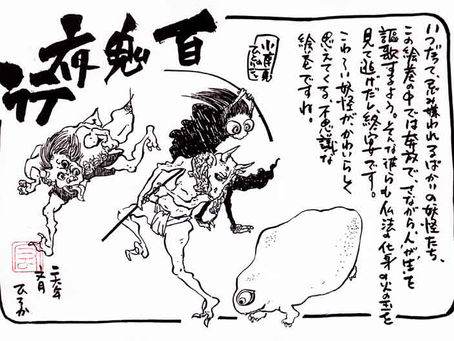 いつだって、忌み嫌われるばかりの妖怪たち、
この絵巻の中では奔放で、さながら人が生を
謳歌するよう。そんな彼らも仏法の化身の火の玉を
見て逃げだし終宴です。
こわ〜い妖怪がかわいらしく
思えてくる、不思議な
絵巻ですね。
百鬼夜
行
二六年
六月
ひろか